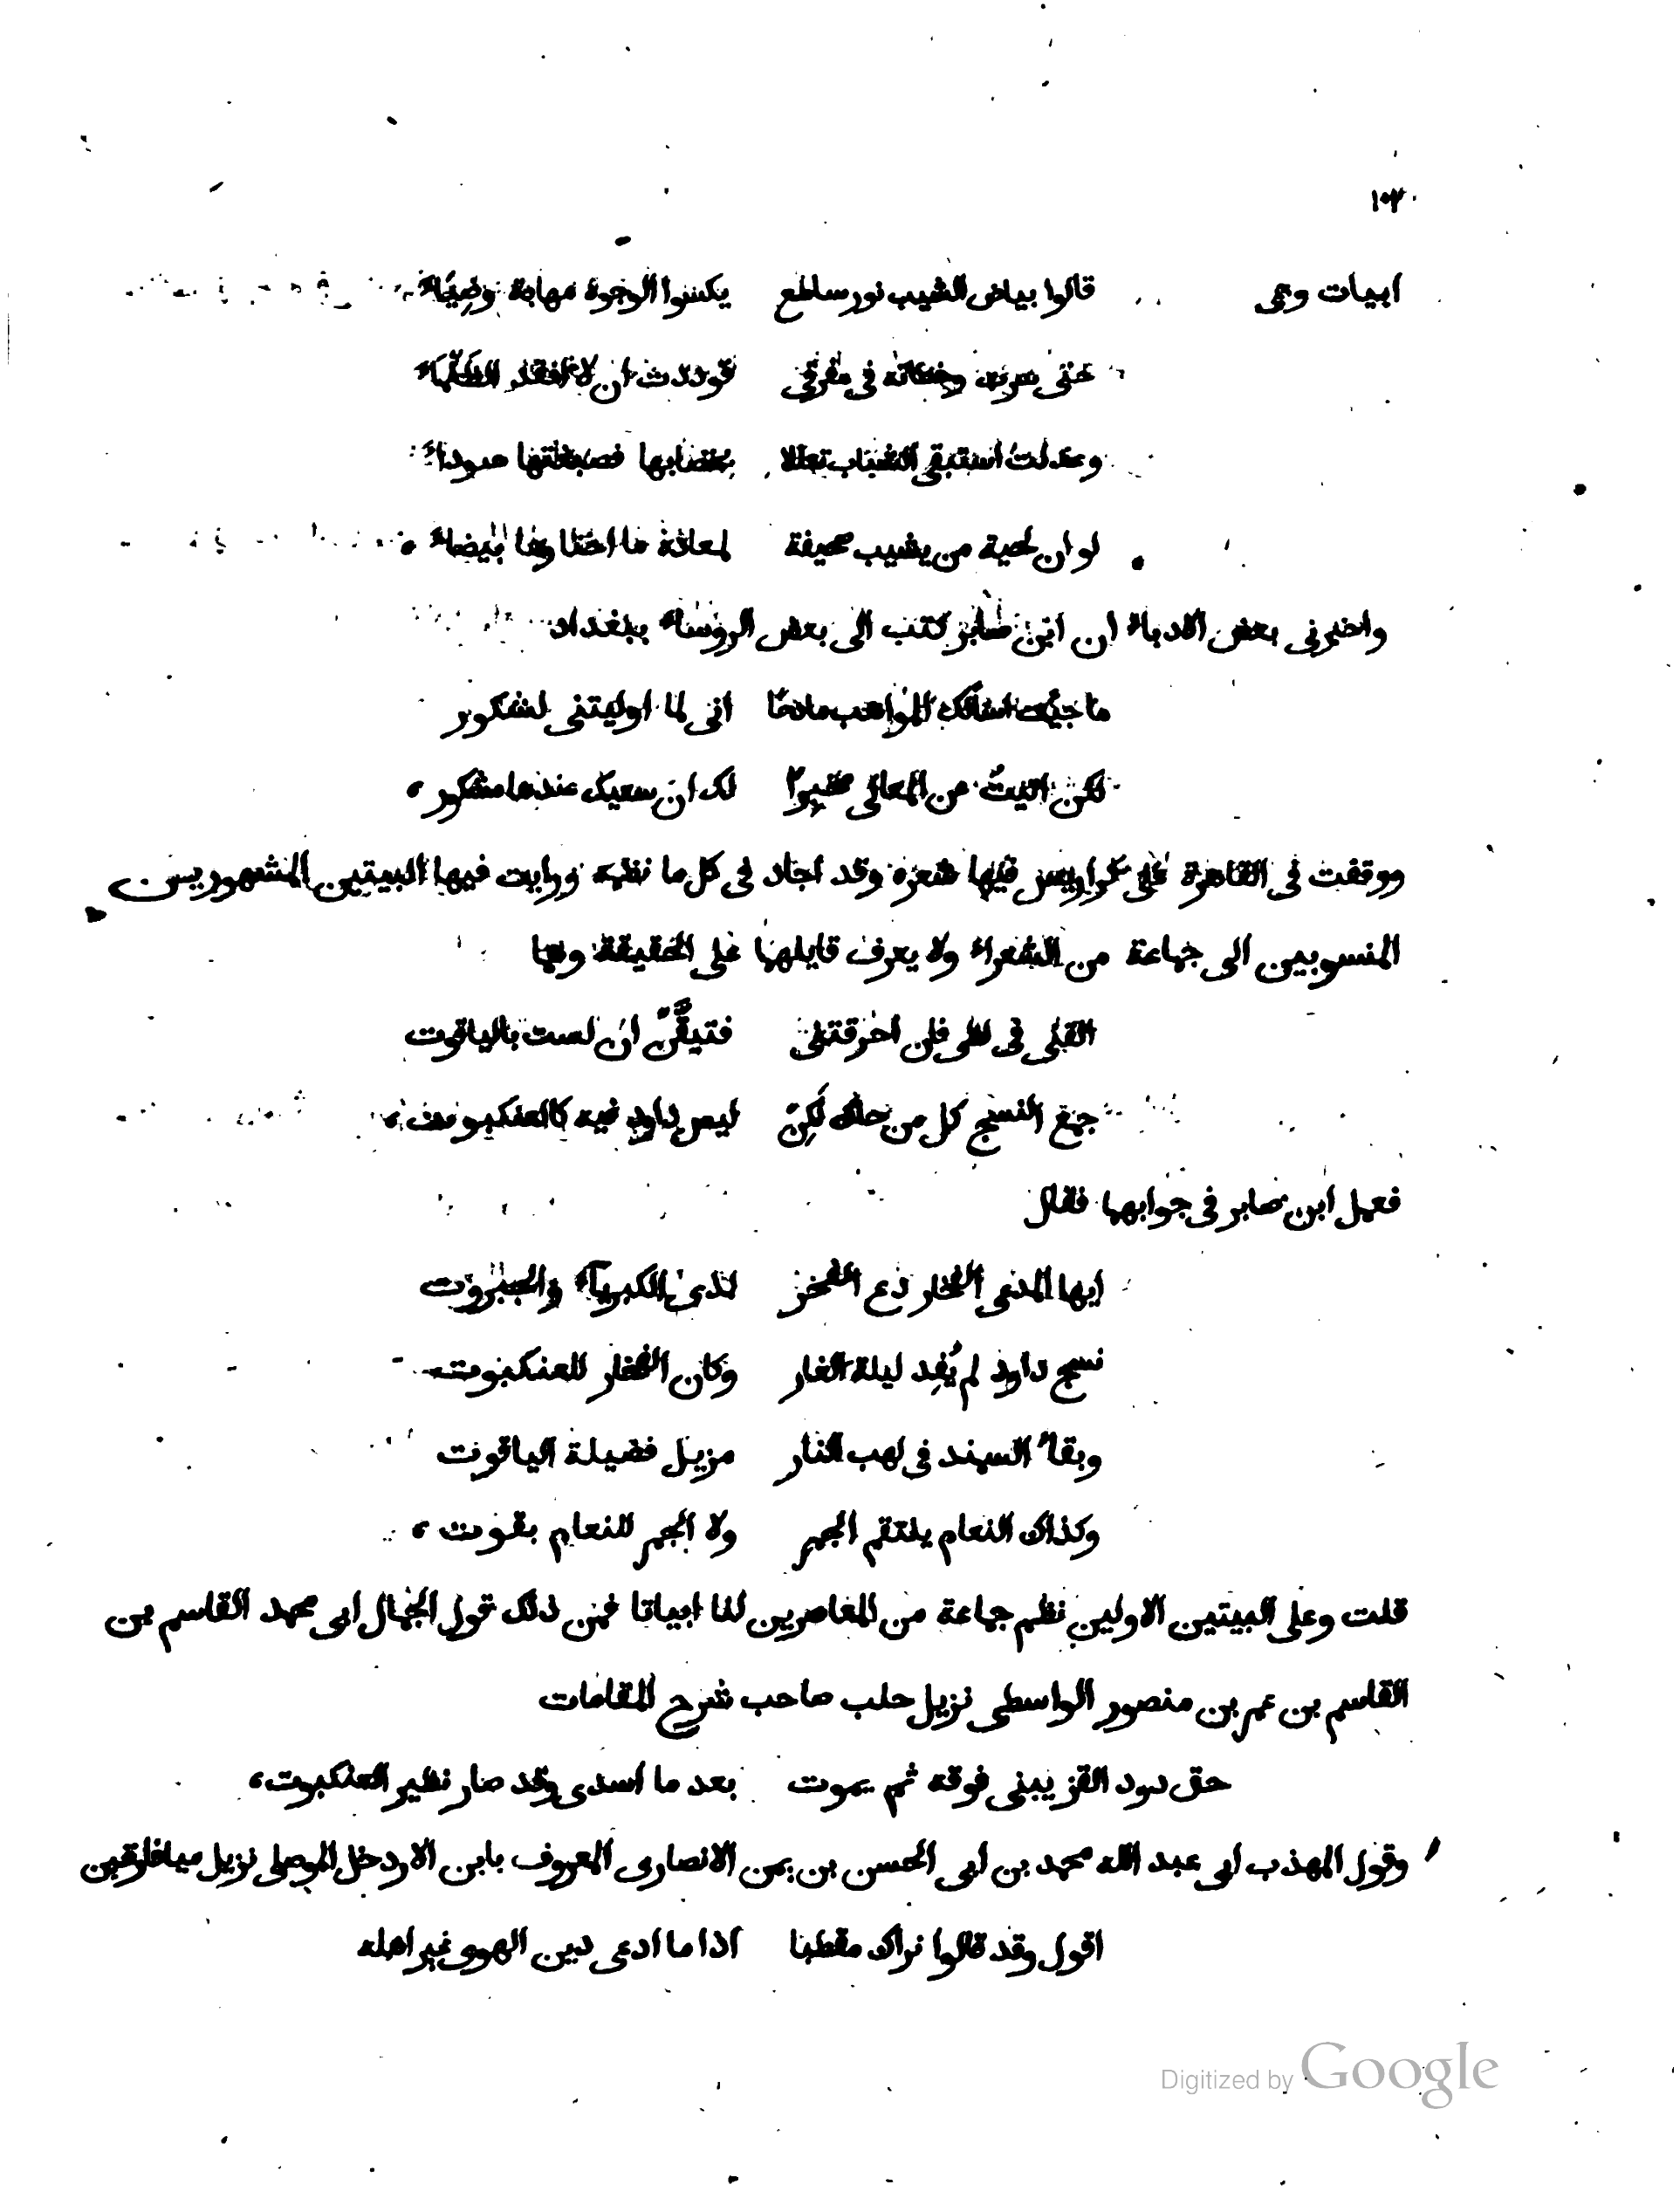 ١٠٣
ابيات وهى قالوا بياض الشيب نور ساطع يكسوا الوجوة مهابة وضياء
حتى سرت وخطاته فى مفرقى فوددت ان لا افقد الظلماء
وعدلت استبقى الشباب تعللا بخضابها فصبغتها سوداء
لو ان لحية من يشيب صحيفة لمعاده ما اختارها بيضاء
واخبرنى بعض الادباء ان ابن صابر كتب الى بعض الروساء ببغداد
ما جيت اسالك المواهب مادحا انى لما اوليتنى لشكور
لكن اتيت عن المعالى مخبرا لك ان سعيك عندها مشكور
ووقفت فى القاهرة على كراريس فيها شعره وقد اجاد فى كل ما نظمه ورايت فيها البيتين المشهورين
المنسوبين الى جماعة من الشعراء ولا يعرف قايلهما على الحقيقة وهما
القنى فى لظى فان احرقتنى فتيقَّنْ ان لست بالياقوت
جمع النسج كل من حاك لكن ليس داود فيه كالعنكبوت
فعمل ابن صابر فى جوابهما فقال
ايها المدعى الفخار دع الفخر لذى الكبرياء والجبروت
نسج داود لم يُفِد ليلة الغار وكان الفخار للعنكبوت
وبقاء السمند فى لهب النار مزيل فضيلة الياقوت
وكذاك النعام يلتقم الجمر ولا الجمر للنعام بقوت
قلت وعلى البيتين الاولين نظم جماعة من المعاصرين لنا ابياتا فمن ذلك قول الجمال ابى محمد القاسم بن
القاسم بن عمر بن منصور الواسطى نزيل حلب صاحب شرح المقامات
حق دود القز يبنى فوقه ثم يموت بعد ما اسدى وقد صار نظير العنكبوت
وقول المهذب ابى عبد الله محمد بن ابى الحسن بن يمن الانصارى المعروف بابن الاردخل الموصلى نزيل ميافارقين
اقول وقد قالوا نراك مقطبا اذا ما ادعى دين الهوى غير اهله
Digitized by Google